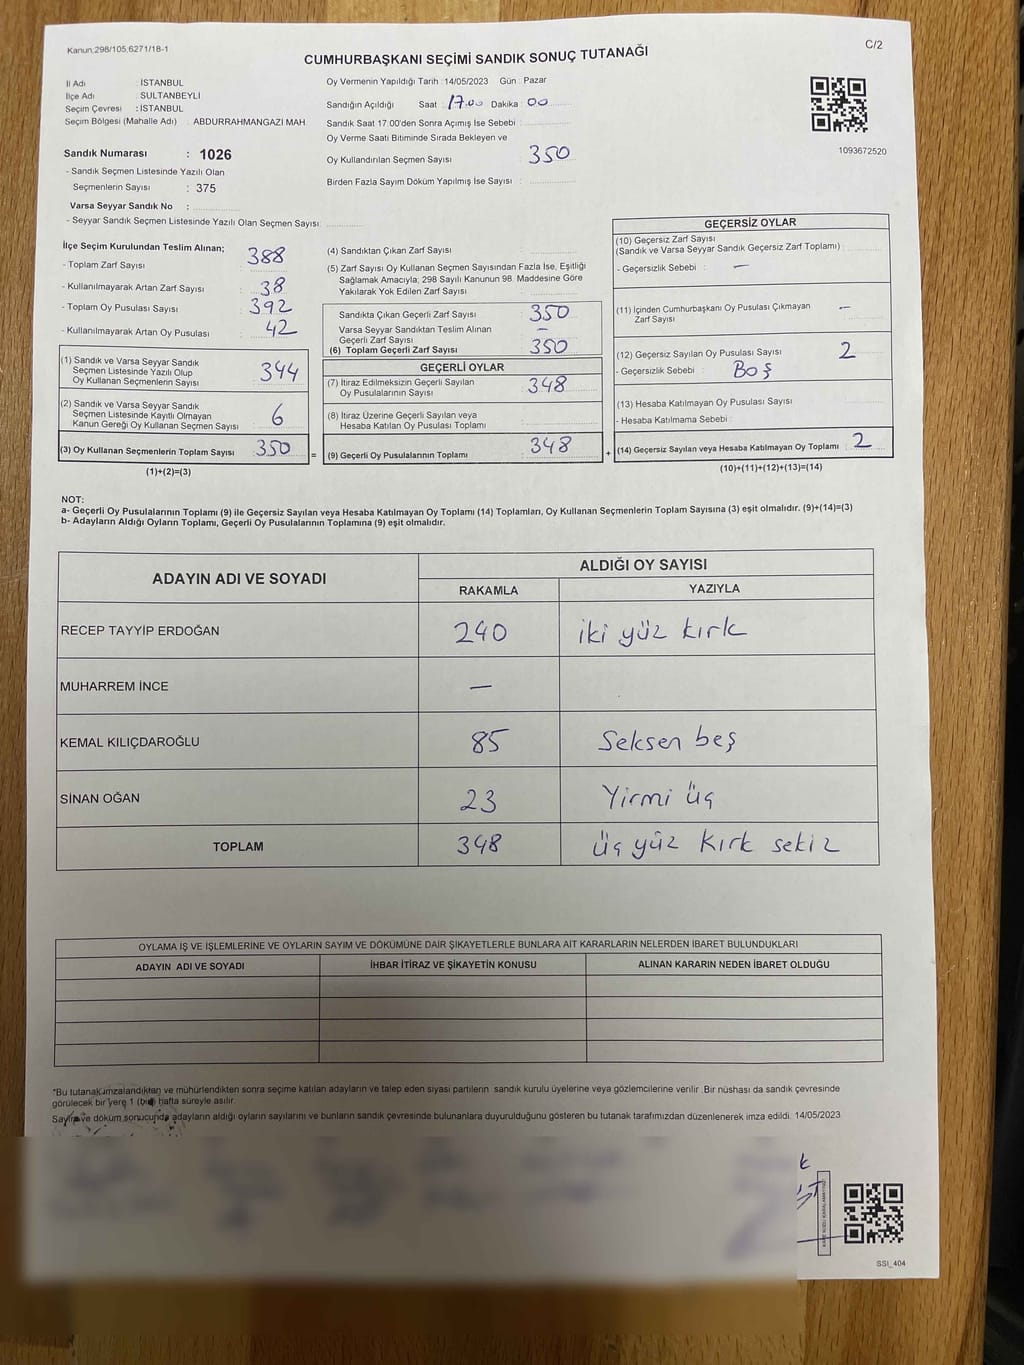 Kanun:298/105,6271/18-1
C/2
CUMHURBAŞKANI SEÇİMİ SANDIK SONUÇ TUTANAĞI
İl Adı : İSTANBUL
İlçe Adı : SULTANBEYLİ
Seçim Çevresi : İSTANBUL
Seçim Bölgesi (Mahalle Adı) : ABDURRAHMANGAZI MAH.
Sandık Numarası : 1026
- Sandık Seçmen Listesinde Yazılı Olan
Seçmenlerin Sayısı : 375
Varsa Seyyar Sandık No :
- Seyyar Sandık Seçmen Listesinde Yazılı Olan Seçmen Sayısı:
Oy Vermenin Yapıldığı Tarih : 14/05/2023 Gün : Pazar
Sandığın Açıldığı Saat : 17.00 Dakika : 00
Sandık Saat 17.00'den Sonra Açımış İse Sebebi :
Oy Verme Saati Bitiminde Sırada Bekleyen ve
Oy Kullandırılan Seçmen Sayısı : 350
Birden Fazla Sayım Döküm Yapılmış İse Sayısı :
1093672520
İlçe Seçim Kurulundan Teslim Alınan;
- Toplam Zarf Sayısı : 388
- Kullanılmayarak Artan Zarf Sayısı : 38
- Toplam Oy Pusulası Sayısı : 392
- Kullanılmayarak Artan Oy Pusulası : 42
(1) Sandık ve Varsa Seyyar Sandık
Seçmen Listesinde Yazılı Olup
Oy Kullanan Seçmenlerin Sayısı : 344
(2) Sandık ve Varsa Seyyar Sandık
Seçmen Listesinde Kayıtlı Olmayan
Kanun Gereği Oy Kullanan Seçmen Sayısı : 6
(3) Oy Kullanan Seçmenlerin Toplam Sayısı : 350
(1)+(2)=(3)
(4) Sandıktan Çıkan Zarf Sayısı :
(5) Zarf Sayısı Oy Kullanan Seçmen Sayısından Fazla İse, Eşitliği
Sağlamak Amacıyla, 298 Sayılı Kanunun 98. Maddesine Göre
Yakılarak Yok Edilen Zarf Sayısı :
Sandıkta Çıkan Geçerli Zarf Sayısı : 350
Varsa Seyyar Sandıktan Teslim Alınan
Geçerli Zarf Sayısı : —
(6) Toplam Geçerli Zarf Sayısı : 350
GEÇERLİ OYLAR
(7) İtiraz Edilmeksizin Geçerli Sayılan
Oy Pusulalarının Sayısı : 348
(8) İtiraz Üzerine Geçerli Sayılan veya
Hesaba Katılan Oy Pusulası Toplamı :
= (9) Geçerli Oy Pusulalarının Toplamı : 348
GEÇERSİZ OYLAR
(10) Geçersiz Zarf Sayısı
(Sandık ve Varsa Seyyar Sandık Geçersiz Zarf Toplamı) :
- Geçersizlik Sebebi : —
(11) İçinden Cumhurbaşkanı Oy Pusulası Çıkmayan
Zarf Sayısı : —
(12) Geçersiz Sayılan Oy Pusulası Sayısı : 2
- Geçersizlik Sebebi : Boş
(13) Hesaba Katılmayan Oy Pusulası Sayısı :
- Hesaba Katılmama Sebebi :
+ (14) Geçersiz Sayılan veya Hesaba Katılmayan Oy Toplamı : 2
(10)+(11)+(12)+(13)=(14)
NOT:
a- Geçerli Oy Pusulalarının Toplamı (9) ile Geçersiz Sayılan veya Hesaba Katılmayan Oy Toplamı (14) Toplamları, Oy Kullanan Seçmenlerin Toplam Sayısına (3) eşit olmalıdır. (9)+(14)=(3)
b- Adayların Aldığı Oyların Toplamı, Geçerli Oy Pusulalarının Toplamına (9) eşit olmalıdır.
ADAYIN ADI VE SOYADI ALDIĞI OY SAYISI
RAKAMLA YAZIYLA
RECEP TAYYİP ERDOĞAN 240 iki yüz kırk
MUHARREM İNCE —
KEMAL KILIÇDAROĞLU 85 Seksen beş
SİNAN OĞAN 23 Yirmi üç
TOPLAM 348 üç yüz kırk sekiz
OYLAMA İŞ VE İŞLEMLERİNE VE OYLARIN SAYIM VE DÖKÜMÜNE DAİR ŞİKAYETLERLE BUNLARA AİT KARARLARIN NELERDEN İBARET BULUNDUKLARI
ADAYIN ADI VE SOYADI İHBAR İTİRAZ VE ŞİKAYETİN KONUSU ALINAN KARARIN NEDEN İBARET OLDUĞU
*Bu tutanak imzalandıktan ve mühürlendikten sonra seçime katılan adayların ve talep eden siyasi partilerin sandık kurulu üyelerine veya gözlemcilerine verilir. Bir nüshası da sandık çevresinde
görülecek bir yere 1 (bir) hafta süreyle asılır.
Sayım ve döküm sonucunda adayların aldığı oyların sayılarını ve bunların sandık çevresinde bulunanlara duyurulduğunu gösteren bu tutanak tarafımızdan düzenlenerek imza edildi. 14/05/2023
SSI_404